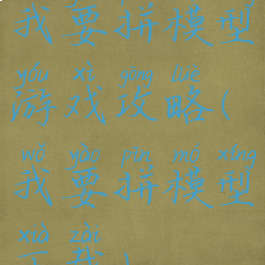 我要拼模型
yóu xì gōng lüè
游戏攻略(
wǒ yào pīn mó xíng
我要拼模型
xià zǎi
下载)